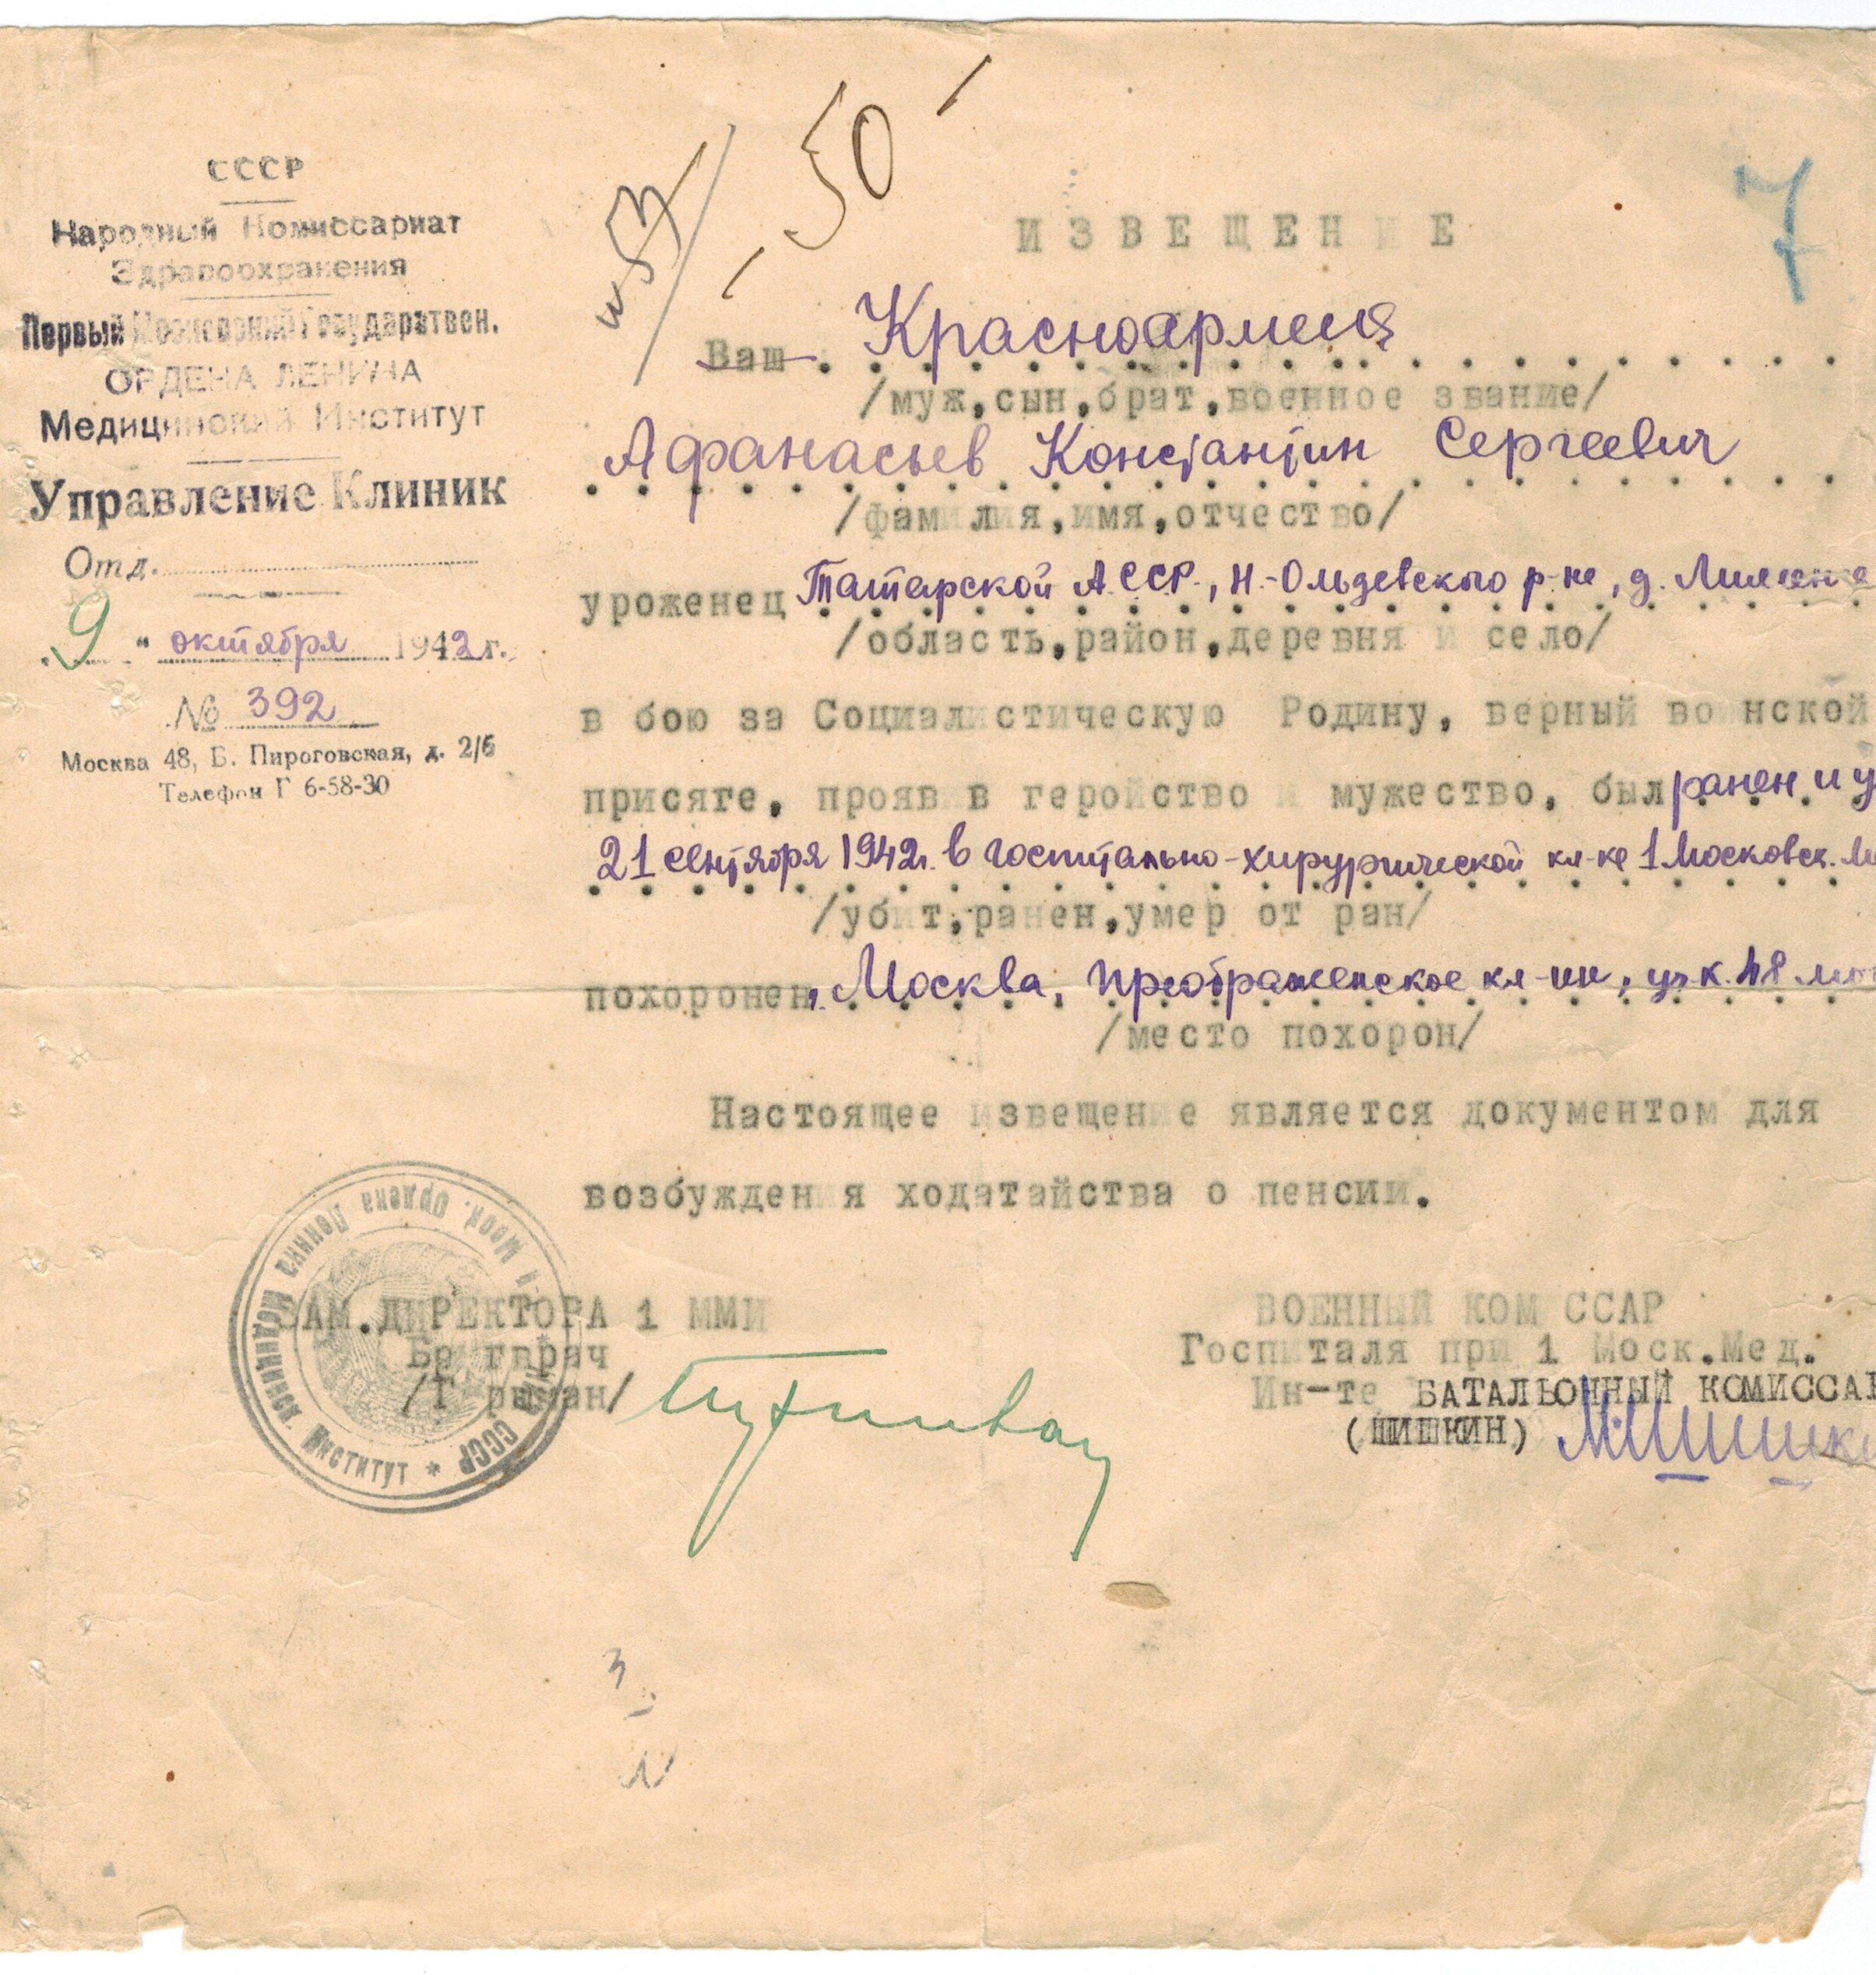 СССР
Народный Комиссариат
Здравоохранения
Первый Московский Государствен.
ОРДЕНА ЛЕНИНА
Медицинский Институт
Управление Клиник
Отд.
"9" октября 1942 г.
№ 392
Москва 48, Б. Пироговская, д. 2/6
Телефон Г 6-58-30
50
7
ИЗВЕЩЕНИЕ
Ваш Красноармеец
/муж,сын,брат,военное звание/
Афанасьев Константин Сергеевич
/фамилия,имя,отчество/
уроженец Татарской АССР, Н.-Ольдевского р-не, д.
/область,район,деревня и село/
в бою за Социалистическую Родину, верный воинской
присяге, проявив геройство и мужество, был ранен и у
21 сентября 1942г. в госпитально-хирургической кл-ке 1 Московск.
/убит,ранен,умер от ран/
похоронен, Москва, Преображенское кл-ще, уч-к. 48
/место похорон/
Настоящее извещение является документом для
возбуждения ходатайства о пенсии.
ЗАМ.ДИРЕКТОРА 1 ММИ
Бригврач
ВОЕННЫЙ КОМИССАР
Госпиталя при 1 Моск.Мед.
Ин-те БАТАЛЬОННЫЙ КОМИССАР
(ШИШКИН) М.Шишки
1 Моск. Ордена Ленина Медицинск. Институт * НКЗ СССР *
3